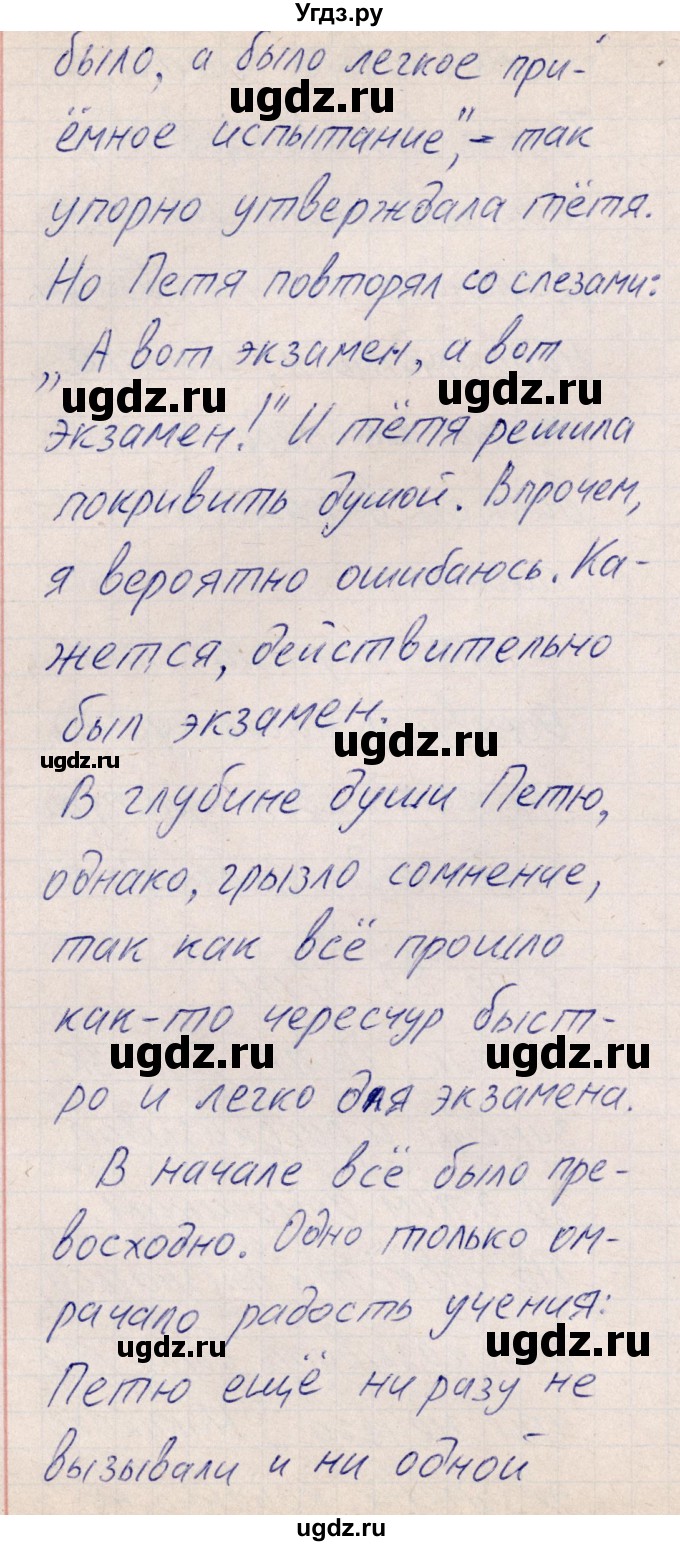 Угдз.ру
было, а было легкое при-
ugdz.ru
ёмное испытание", - так
упорно утверждала тётя.
Но Петя повторял со слезами:
„А вот экзамен, а вот
ugdz.ru ugdz.ru
экзамен!" И тётя решила
покривить душой. Впрочем,
я вероятно ошибаюсь. Ка-
жется, действительно
был экзамен.
ugdz.ru ugdz.ru
В глубине души Петю,
однако, грызло сомнение,
так как всё прошло
как-то чересчур быст-
ugdz.ru ugdz.ru
ро и легко для экзамена.
В начале всё было пре-
восходно. Одно только ом-
рачало радость учения:
ugdz.ru ugdz.ru
Петю ещё ни разу не
вызывали и ни одной
ugdz.ru